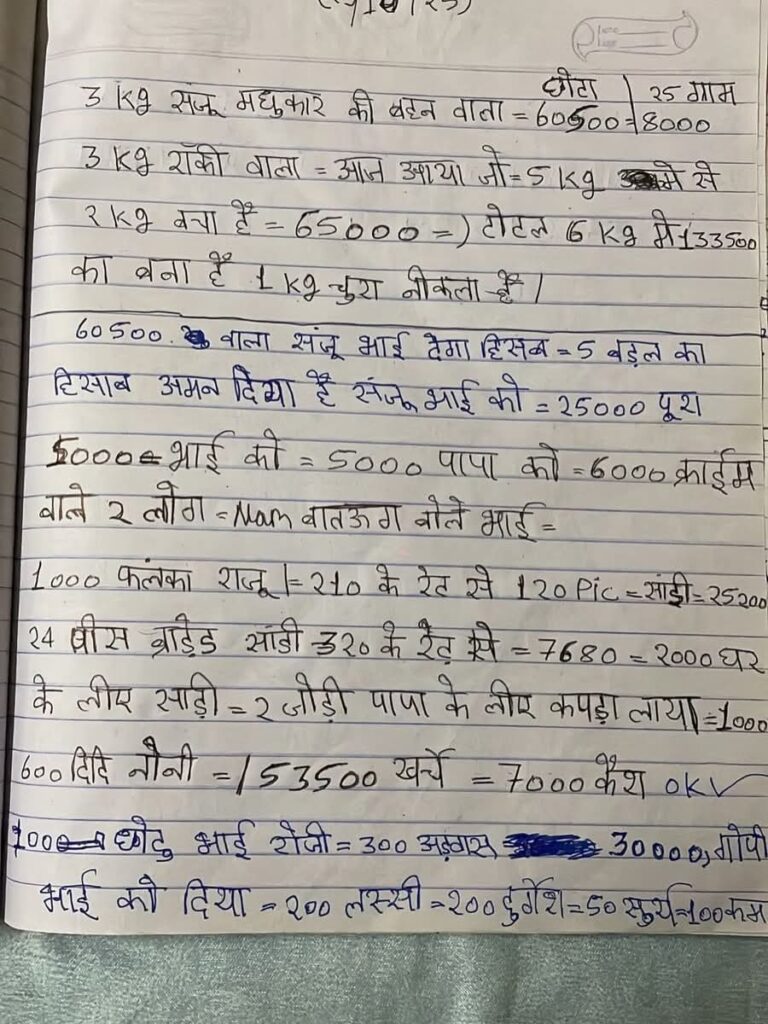 छोटा | 25 ग्राम
3 kg संजू मधुकार की बहन वाला = 60500 = 8000
3 kg रॉकी वाला = आज आया जो = 5 kg मे से
2 kg बचा है = 65000 =) टोटल 6 kg मे 133500
का बना है 1 kg चुरा नीकला है |
60500. वाला संजू भाई देगा हिसब = 5 बड़ल का
हिसाब अमन दिया है संजू भाई को = 25000 पूरा
5000 भाई को = 5000 पापा को = 6000 क्राईम
वाले 2 लोग = बोले भाई =
1000 फलंका राजू |= 210 के रेट से 120 Pic = साड़ी = 25200
24 पीस ब्रांडेड साडी 320 के रेट से = 7680 = 2000 घर
के लीए साड़ी = 2 जोड़ी पापा के लीए कपड़ा लाया = 1000
600 दिदि नौनी = 153500 खर्चे = 7000 कैश OK
1000 छोटु भाई रोजी = 300 30000, गोपी
भाई को दिया = 200 लस्सी = 200 दुर्गेश = 50 सुर्य = 100 कम